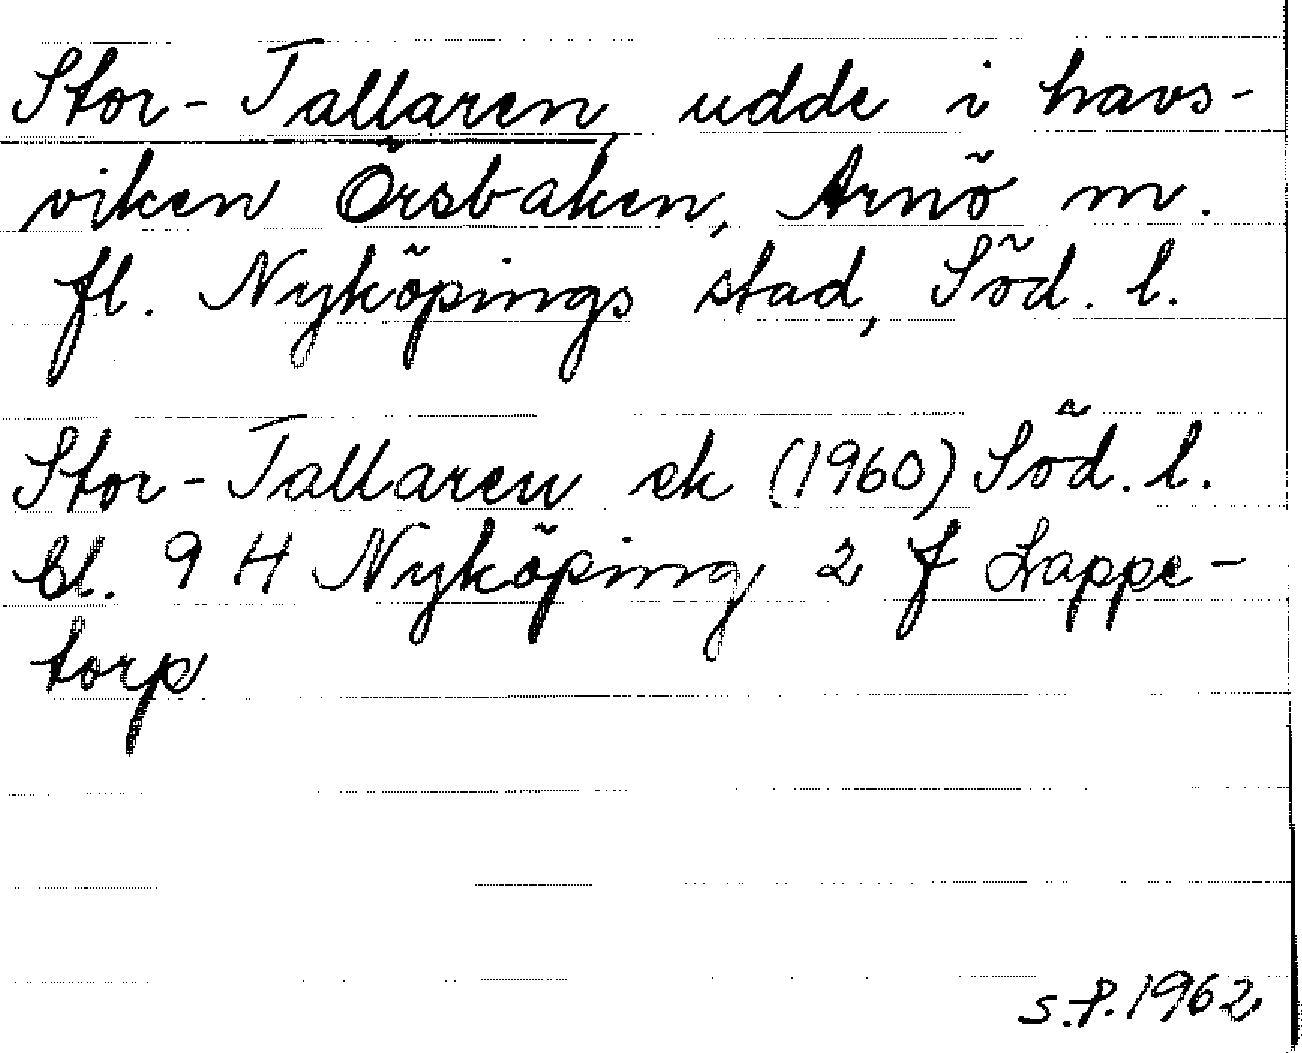 Stor-Tallaren, udde i havs-
viken Örsbaken, Arnö m.
fl. Nyköpings stad, Söd. l.
Stor-Tallaren ek (1960) Söd. l.
bl. 9 H Nyköping 2 f Lappe-
torp
S.P. 1962